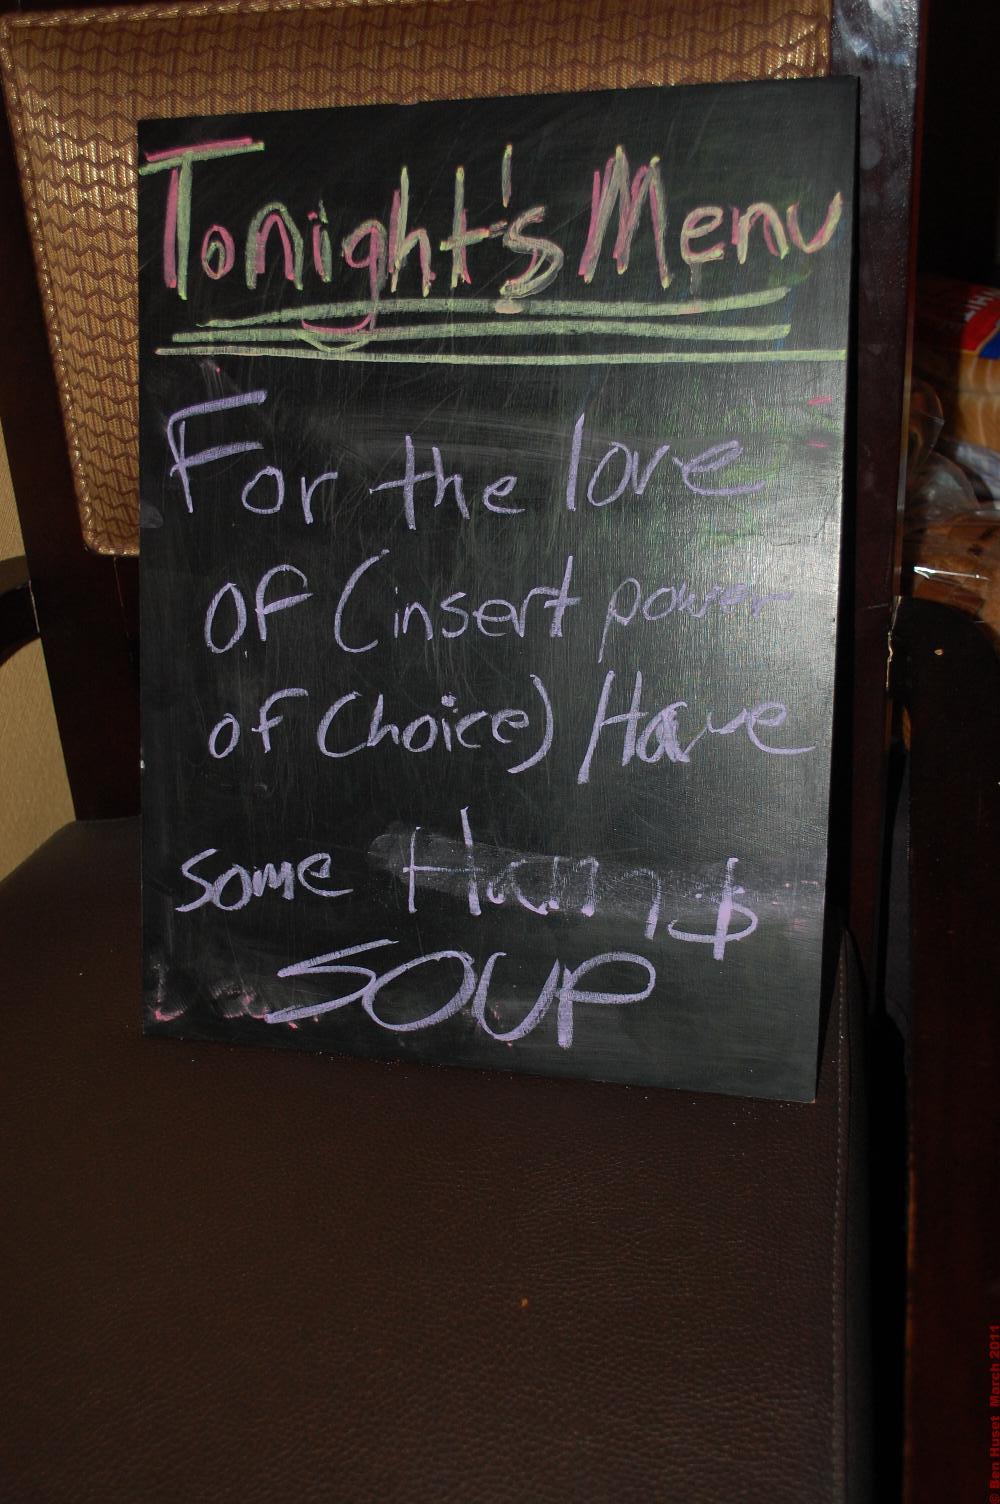 Tonight's Menu
For the love
of (insert power
of Choice) Have
some Ham $
SOUP
© Ben Huset March 2011